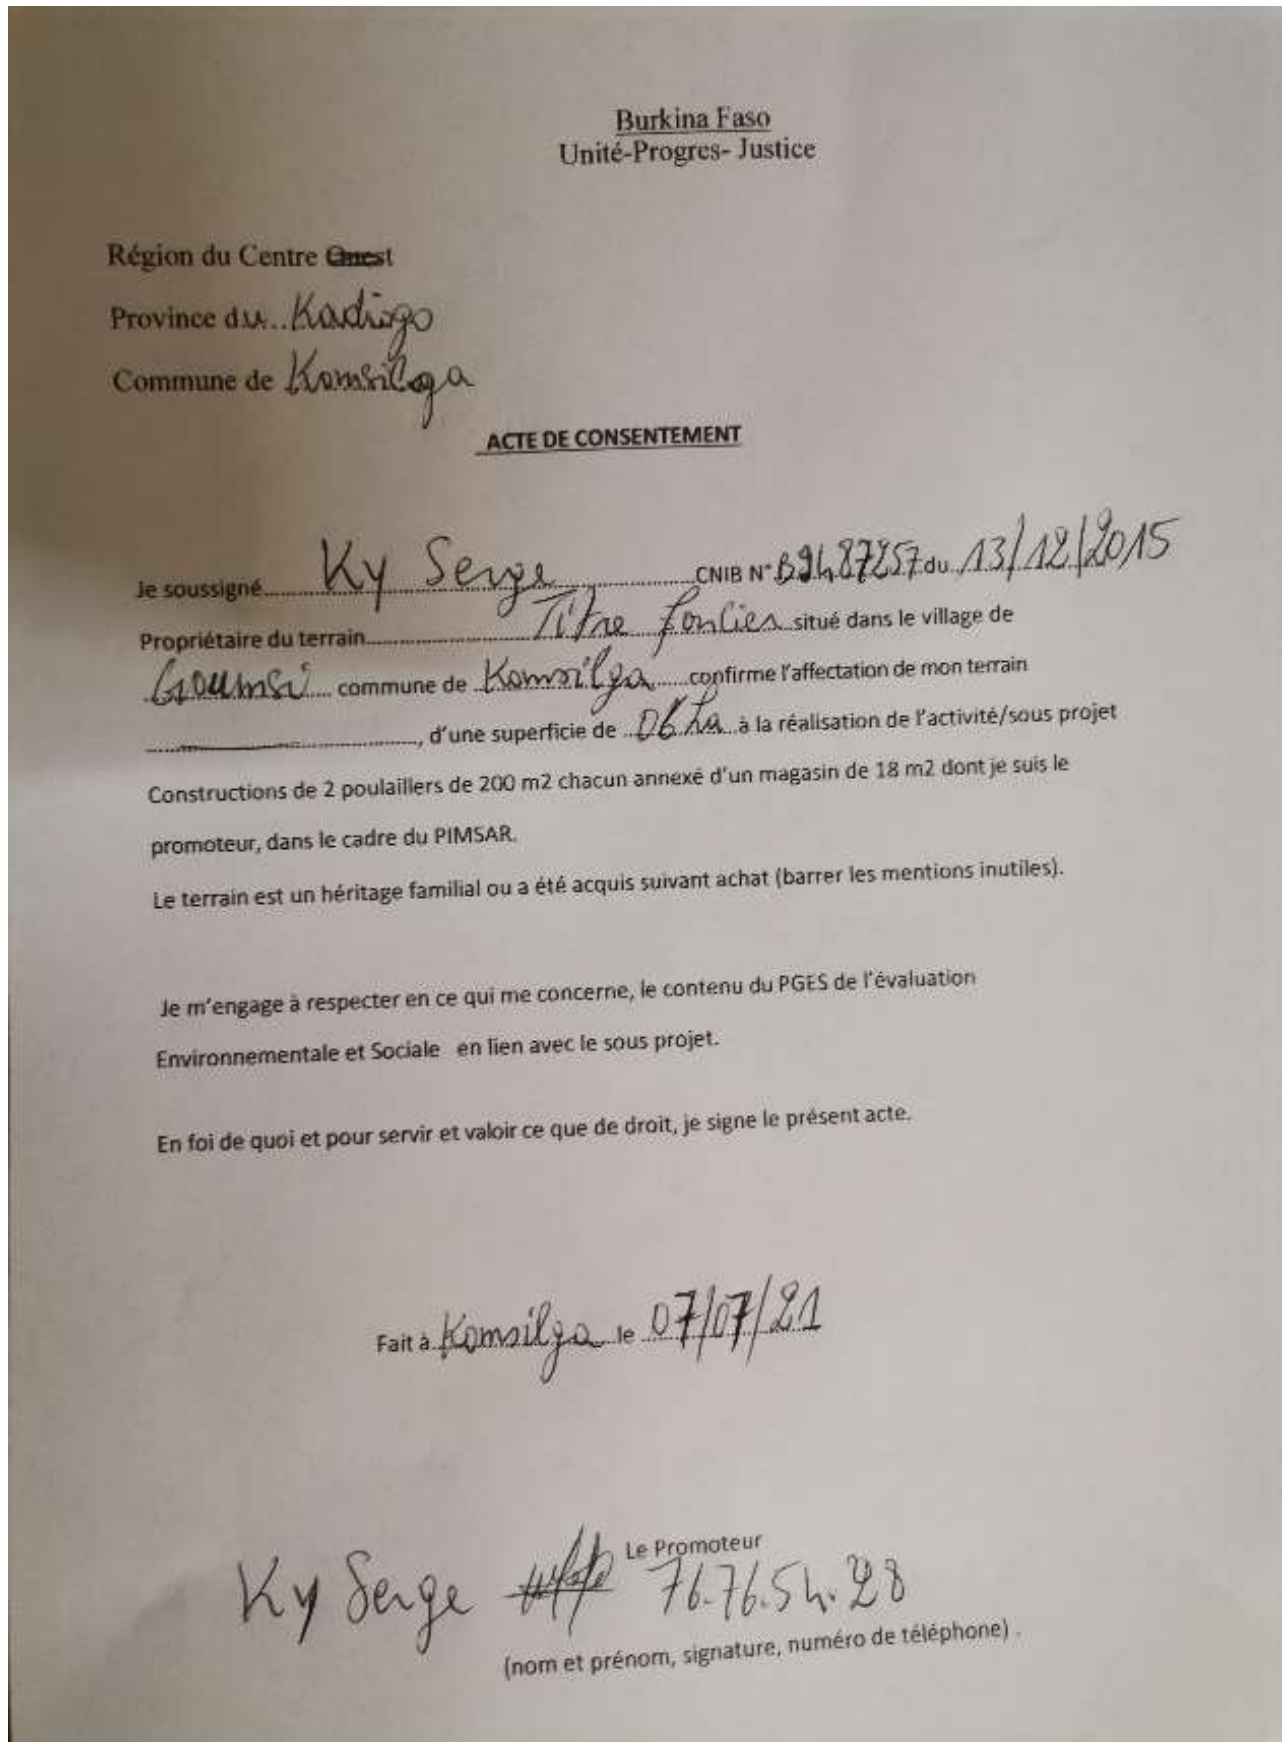 Burkina Faso
Unité-Progres- Justice
Région du Centre Ouest
Province du.. Kadiogo
Commune de Komsilga
ACTE DE CONSENTEMENT
Je soussigné.......Ky Serge.......CNIB N° B9487257 du 13/12/2015
Propriétaire du terrain.......Titre foncier...situé dans le village de
Goumsi.... commune de ..Komsilga.....confirme l'affectation de mon terrain
......................................, d'une superficie de ..06 ha..à la réalisation de l'activité/sous projet
Constructions de 2 poulaillers de 200 m2 chacun annexé d'un magasin de 18 m2 dont je suis le
promoteur, dans le cadre du PIMSAR.
Le terrain est un héritage familial ou a été acquis suivant achat (barrer les mentions inutiles).
Je m'engage à respecter en ce qui me concerne, le contenu du PGES de l'évaluation
Environnementale et Sociale en lien avec le sous projet.
En foi de quoi et pour servir et valoir ce que de droit, je signe le présent acte.
Fait à Komsilga le 07/07/21
Le Promoteur
Ky Serge 76.76.54.28
(nom et prénom, signature, numéro de téléphone) .